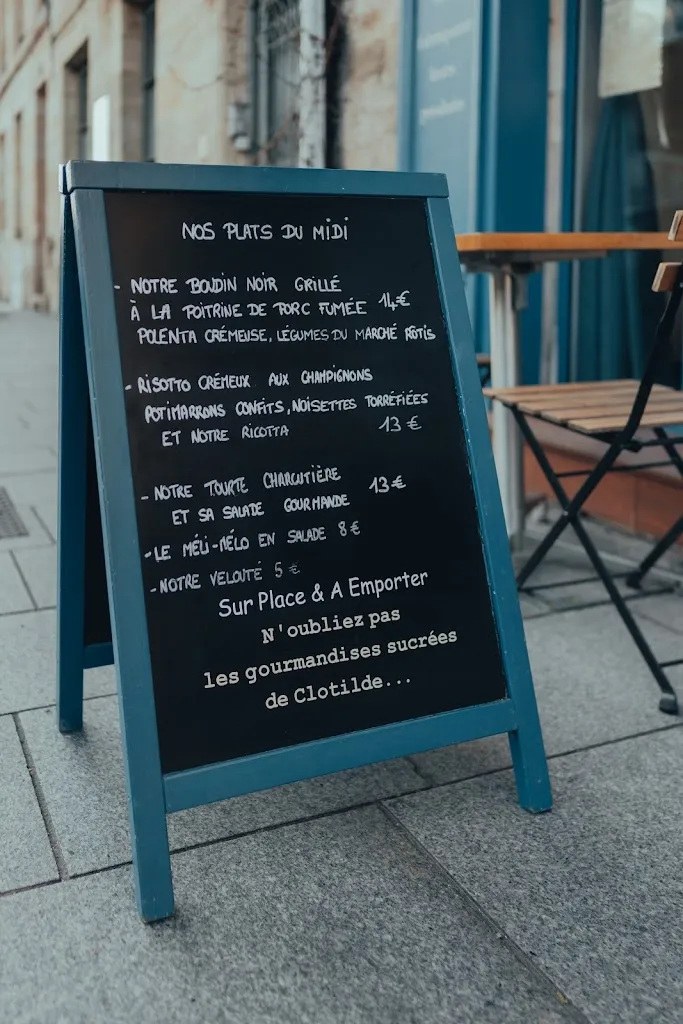 NOS PLATS DU MIDI
- NOTRE BOUDIN NOIR GRILLÉ
À LA POITRINE DE PORC FUMÉE 14€
POLENTA CRÉMEUSE, LÉGUMES DU MARCHÉ RÔTIS
- RISOTTO CRÉMEUX AUX CHAMPIGNONS
POTIMARRONS CONFITS, NOISETTES TORRÉFIÉES
ET NOTRE RICOTTA 13€
- NOTRE TOURTE CHARCUTIÈRE 13€
ET SA SALADE GOURMANDE
- LE MÉLI-MÉLO EN SALADE 8€
- NOTRE VELOUTÉ 5€
Sur Place & A Emporter
N'oubliez pas
les gourmandises sucrées
de Clotilde...